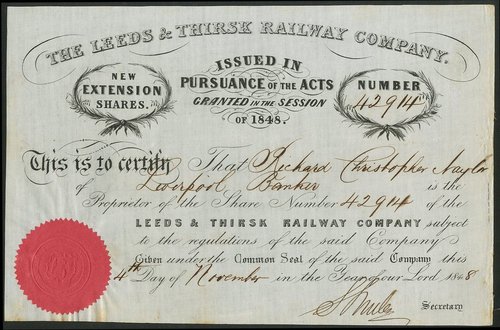 THE LEEDS & THIRSK RAILWAY COMPANY.
NEW
EXTENSION
SHARES.
ISSUED IN
PURSUANCE OF THE ACTS
GRANTED IN THE SESSION
OF 1848.
NUMBER
42914
This is to certify That Richard Christopher Naylor
of Liverpool Banker is the
Proprietor of the Share Number 42914 of the
LEEDS & THIRSK RAILWAY COMPANY subject
to the regulations of the said Company
Given under the Common Seal of the said Company this
4th Day of November in the Year of our Lord 1848
Secretary